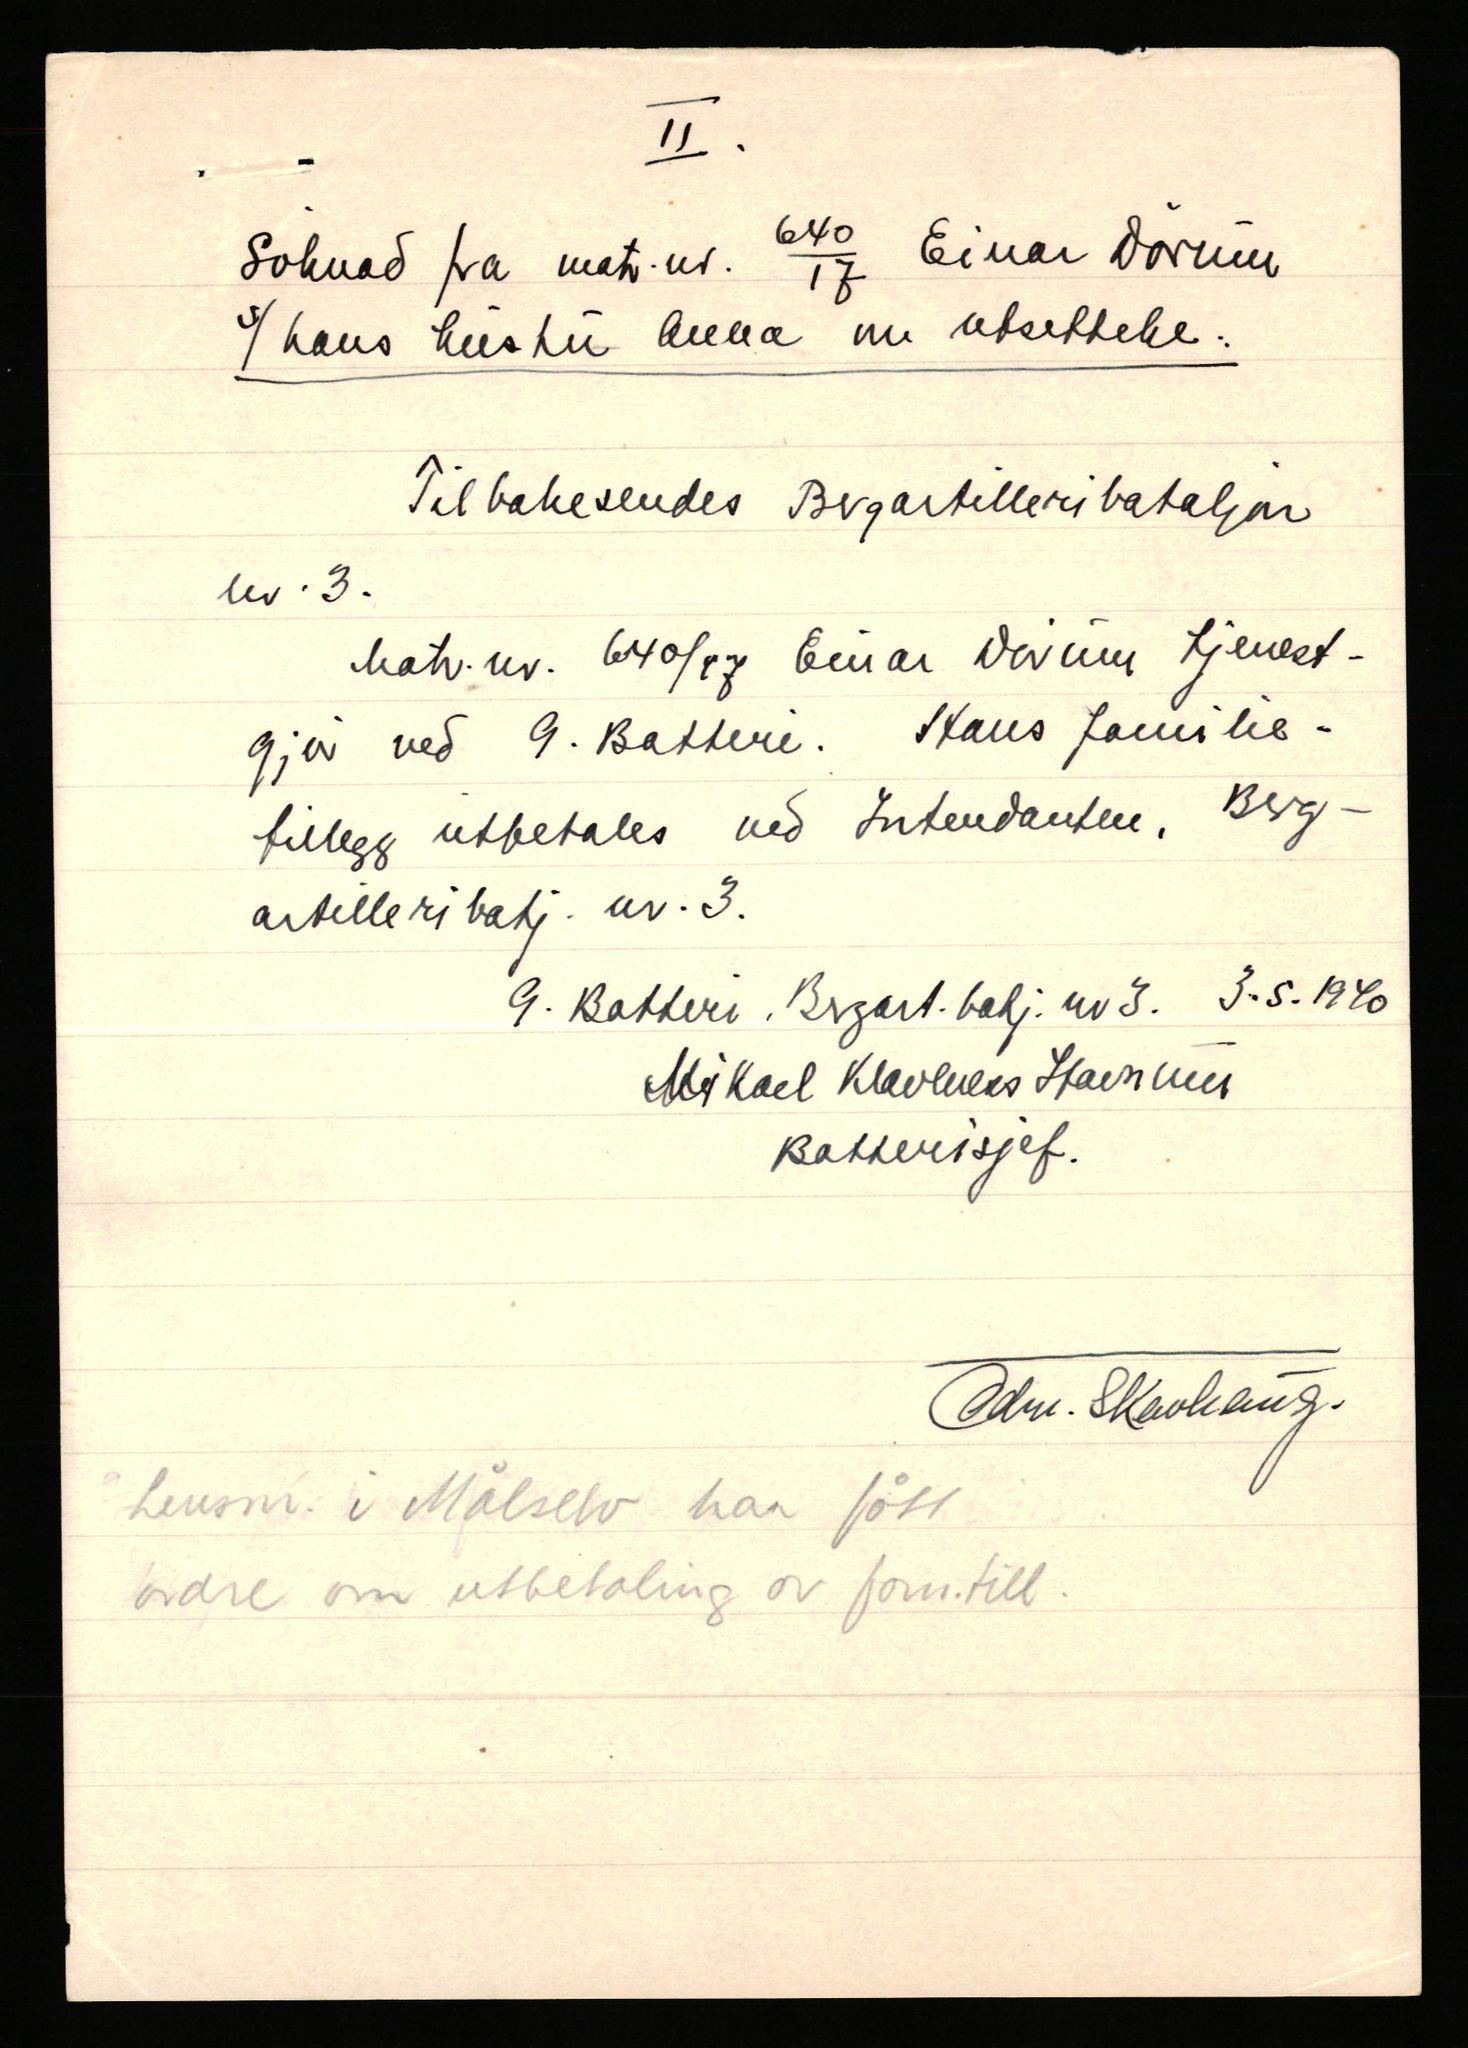 II.
Søknad fra matr.nr. 640/17 Einar Dørum
v/ hans hustru Anna om utsettelse.
Tilbakesendes Bergartilleribataljon
nr. 3.
Matr. nr. 640/17 Einar Dørum tjenest-
gjør ved 9. Batteri. Hans familie-
tillegg utbetales ved Intendanten, Berg-
artilleribatj. nr. 3.
9. Batteri, Bergart.batj. nr 3. 3.5.1940
Mikael
Batterisjef.
Odm. Skavhaug.
Lensm. i Målselv har fått
ordre om utbetaling av fam.till.